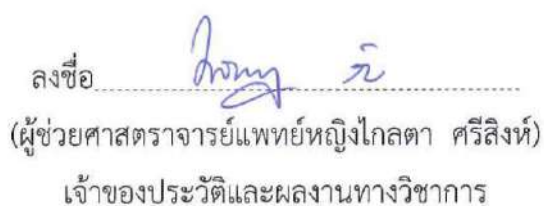 ลงชื่อ
(ผู้ช่วยศาสตราจารย์แพทย์หญิงไกลตา ศรีสิงห์)
เจ้าของประวัติและผลงานทางวิชาการ